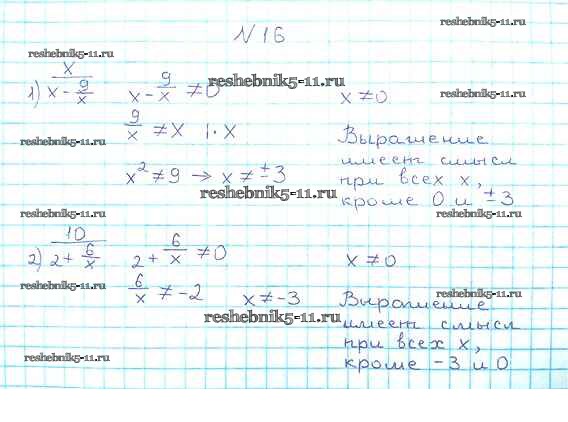 N 16
reshebnik5-11.ru
reshebnik5-11.ru
1) x / (x - 9/x)   x - 9/x ≠ 0   x ≠ 0
reshebnik5-11.ru
reshebnik5-11.ru
9/x ≠ x | · x
reshebnik5-11.ru
Выражение
имеет смысл
при всех x,
кроме 0 и ±3
x² ≠ 9 → x ≠ ±3
reshebnik5-11.ru
reshebnik5-11.ru
reshebnik5-11.ru
2) 10 / (2 + 6/x)   2 + 6/x ≠ 0   x ≠ 0
reshebnik5-11.ru
reshebnik5-11.ru
6/x ≠ -2   x ≠ -3
reshebnik5-11.ru
Выражение
имеет смысл
при всех x,
кроме -3 и 0
reshebnik5-11.ru